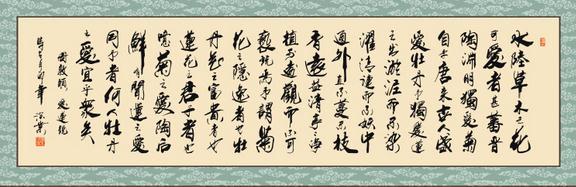 水陸草木之花
可愛者甚蕃晉
陶淵明獨愛菊
自李唐來世人盛
愛牡丹予獨愛蓮
之出淤泥而不染
濯清漣而不妖中
通外直不蔓不枝
香遠益清亭亭淨
植可遠觀而不可
褻玩焉予謂菊
花之隱逸者也牡
丹花之富貴者也
蓮花之君子者也
噫菊之愛陶後
鮮有聞蓮之愛
同予者何人牡丹
之愛宜乎眾矣
周敦頤 愛蓮說